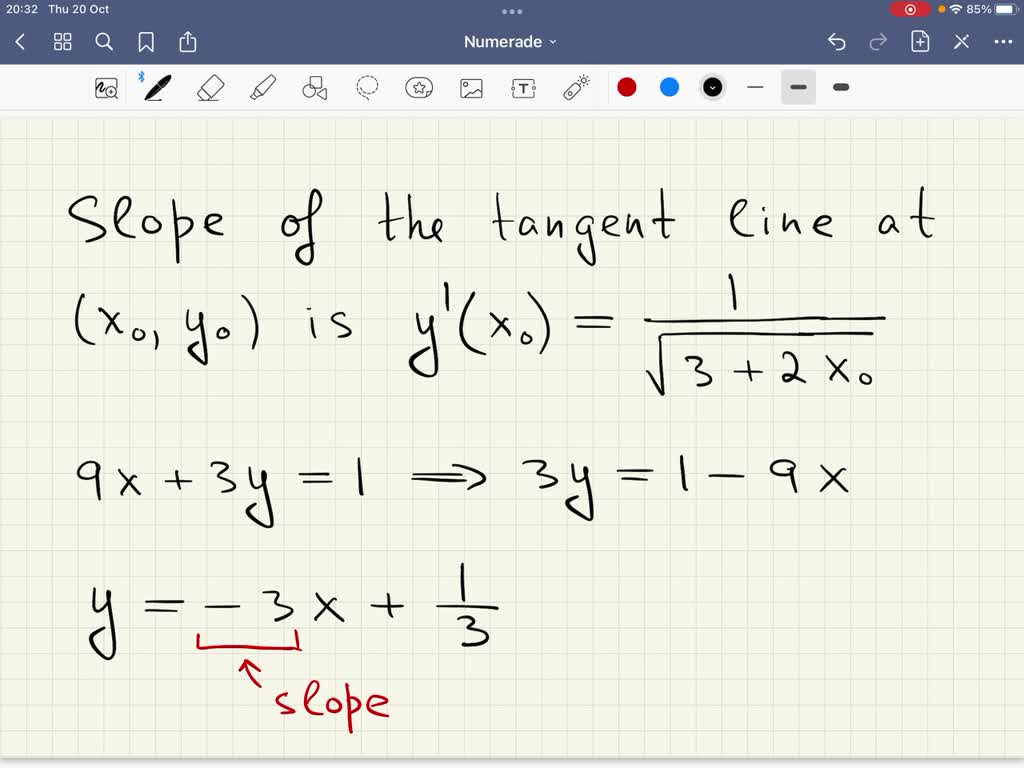 20:32 Thu 20 Oct 85%
Numerade
T
Slope of the tangent line at
(x₀, y₀) is y'(x₀) = 1/√(3 + 2x₀)
9x + 3y = 1 ⟹ 3y = 1 − 9x
y = − 3x + 1/3
slope